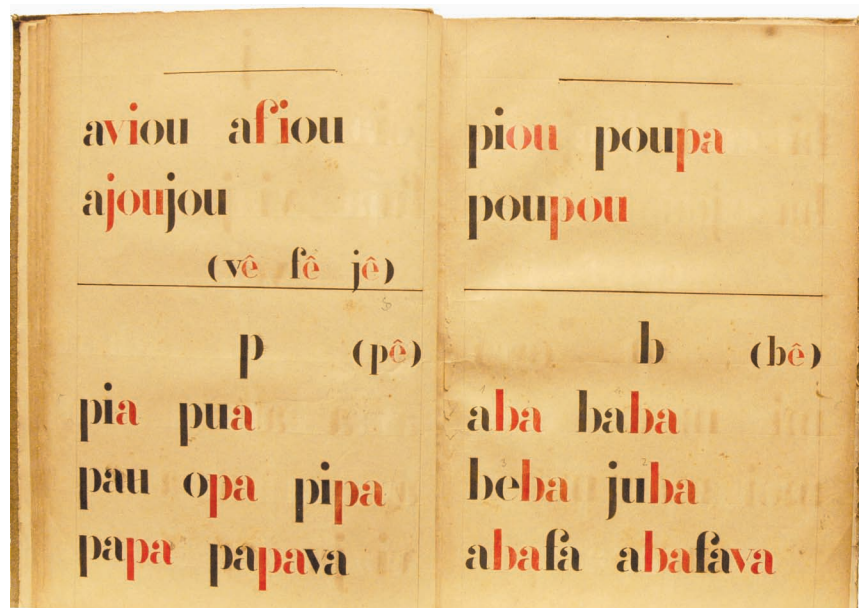 aviou afiou
ajoujou
(vê fê jê)
p (pê)
pia pua
pau opa pipa
papa papava
piou poupa
poupou
b (bê)
aba baba
beba juba
abafa abafava